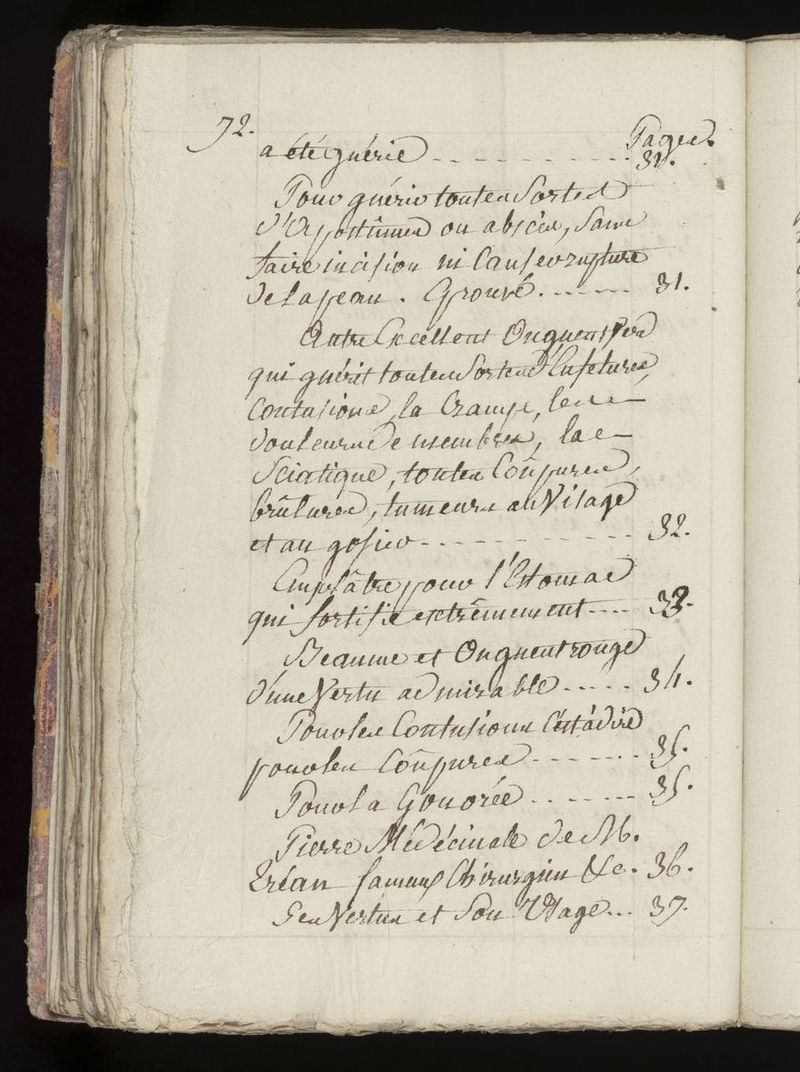 72.
Pages.
a été guérie ---------- 31.
Pour guérir toutes Sortes
d'Apostûmes ou abscès, Sans
faire incision ni Causer rupture
de la peau. Eprouvé. ------ 31.
Autre Excellent Onguent Verd
qui guérit toutes Sortes d'Enfelures,
Contusions, la Crampe, les
douleurs de membres, la
Sciatique, toutes Coupures,
brûlures, tumeurs au Visage
et au gosier ------------ 32.
Emplâtre pour l'Estomac
qui fortifie extrêmement ---- 33.
Beaume et Onguent rouge
d'une Vertu admirable ----- 34.
Pour les Contusions C'est à dire
pour les Coupures ------- 35.
Pour la Gonorée ------- 35.
Pierre Médécinale de M.
fameux Chirurgien &c. 36.
Ses Vertus et Son Usage... 37.